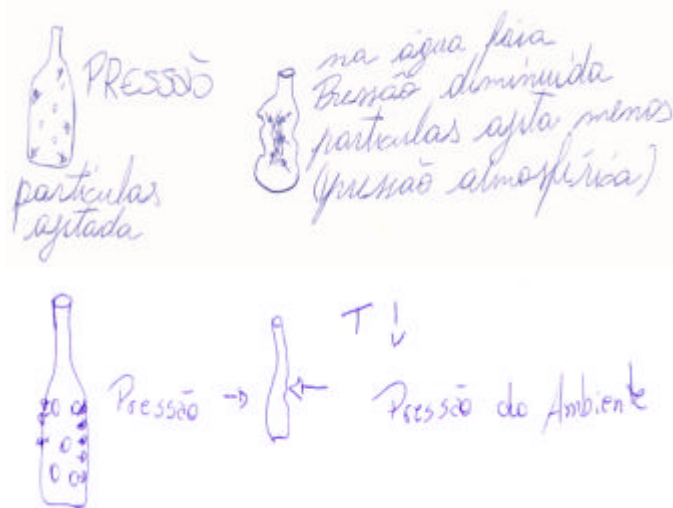 PRESSÃO
partículas
agitada
na água fria
Pressão diminuida
partículas agita menos
(pressão atmosférica)
T ↓
Pressão → ←
Pressão do Ambiente